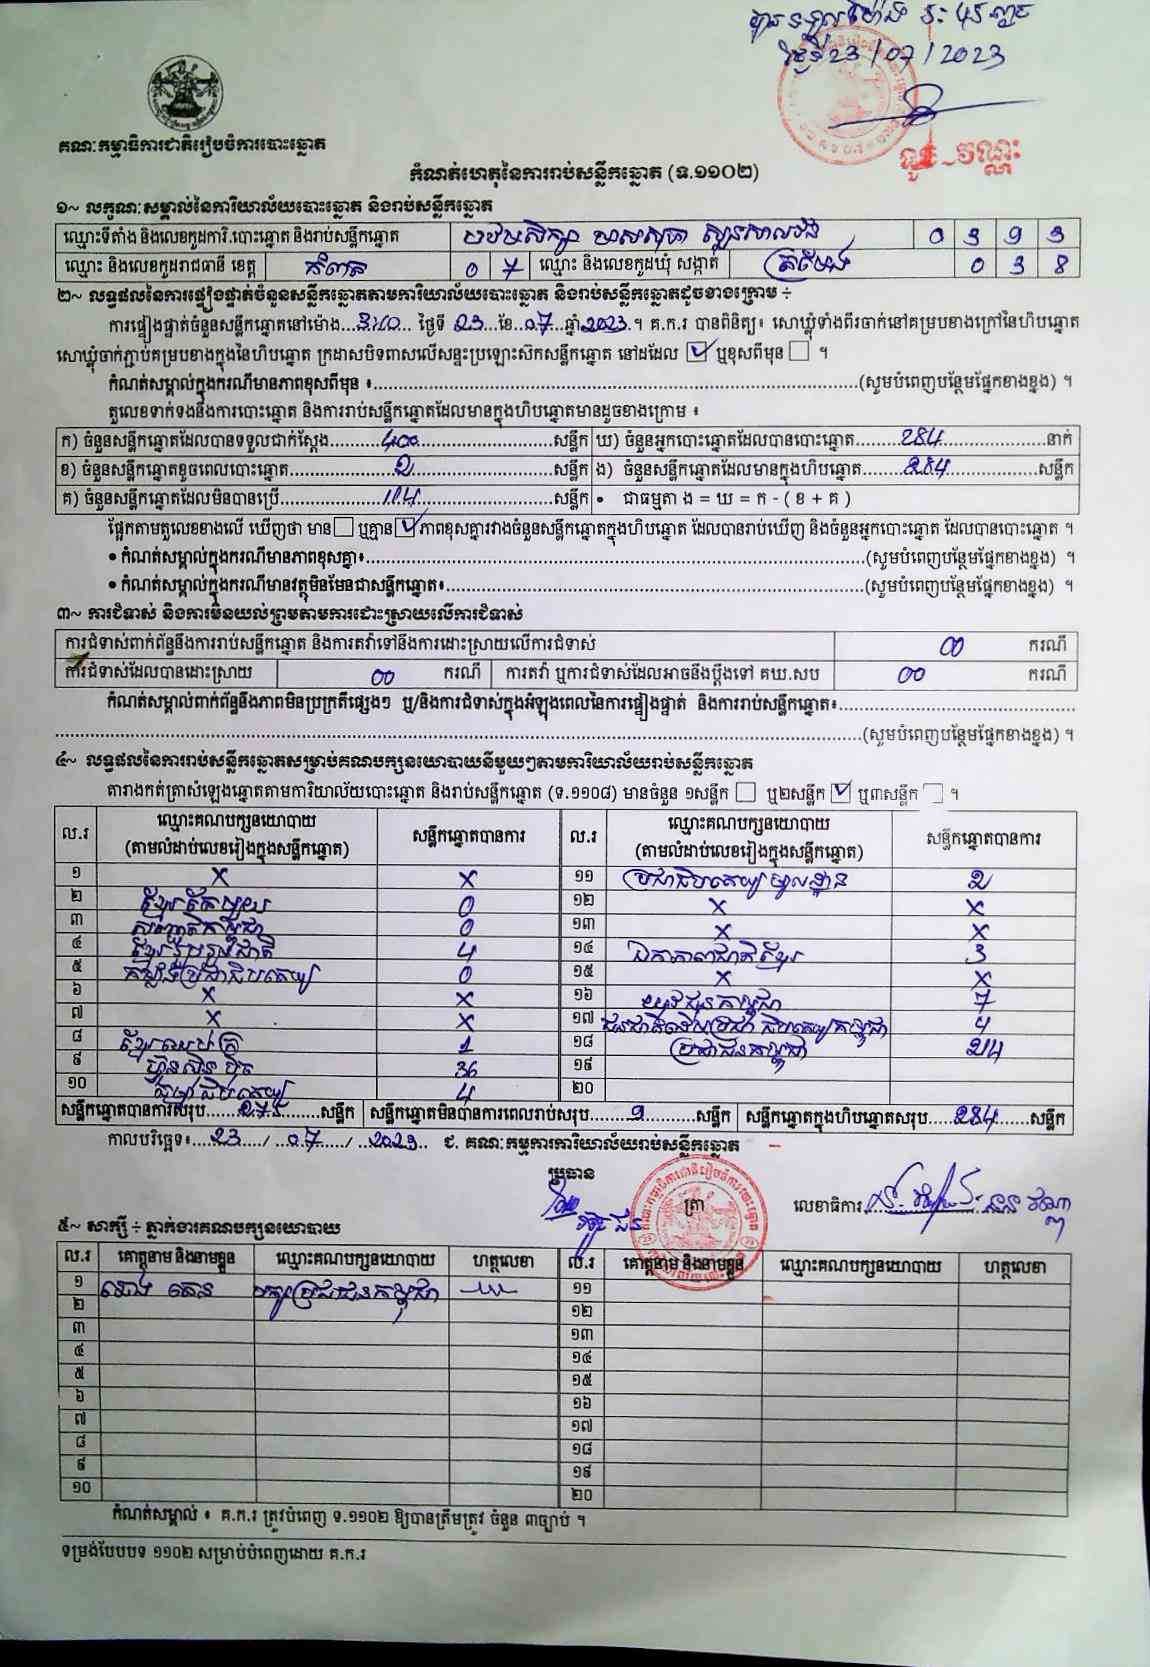 ថ្ងៃទី 23/07/2023
គណៈកម្មាធិការជាតិរៀបចំការបោះឆ្នោត
កំណត់ហេតុនៃការរាប់សន្លឹកឆ្នោត (ទ.១១០២)
១~ លក្ខណៈសម្គាល់នៃការិយាល័យបោះឆ្នោត និងរាប់សន្លឹកឆ្នោត
ឈ្មោះទីតាំង និងលេខកូដការិ.បោះឆ្នោត និងរាប់សន្លឹកឆ្នោត 0 3 9 3
ឈ្មោះ និងលេខកូដរាជធានី ខេត្ត កំពត 0 7 ឈ្មោះ និងលេខកូដឃុំ សង្កាត់ 0 3 8
២~ លទ្ធផលនៃការផ្ទៀងផ្ទាត់ចំនួនសន្លឹកឆ្នោតតាមការិយាល័យបោះឆ្នោត និងរាប់សន្លឹកឆ្នោតដូចខាងក្រោម ÷
ការផ្ទៀងផ្ទាត់ចំនួនសន្លឹកឆ្នោតនៅម៉ោង...3:40... ថ្ងៃទី 23...ខែ..07...ឆ្នាំ2023.។ គ.ក.រ បានពិនិត្យ៖ សោឃ្លុំទាំងពីរចាក់នៅគម្របខាងក្រៅនៃហិបឆ្នោត
សោឃ្លុំចាក់ភ្ជាប់គម្របខាងក្នុងនៃហិបឆ្នោត ក្រដាសបិទពាសលើសន្ទះប្រឡោះស៊កសន្លឹកឆ្នោត នៅដដែល ☑ ឬខុសពីមុន ☐ ។
កំណត់សម្គាល់ក្នុងករណីមានភាពខុសពីមុន ៖...(សូមបំពេញបន្ថែមផ្នែកខាងខ្នង) ។
តួលេខទាក់ទងនឹងការបោះឆ្នោត និងការរាប់សន្លឹកឆ្នោតដែលមានក្នុងហិបឆ្នោតមានដូចខាងក្រោម ៖
ក) ចំនួនសន្លឹកឆ្នោតដែលបានទទួលជាក់ស្តែង...400...សន្លឹក ឃ) ចំនួនអ្នកបោះឆ្នោតដែលបានបោះឆ្នោត...284...នាក់
ខ) ចំនួនសន្លឹកឆ្នោតខូចពេលបោះឆ្នោត...2...សន្លឹក ង) ចំនួនសន្លឹកឆ្នោតដែលមានក្នុងហិបឆ្នោត...284...សន្លឹក
គ) ចំនួនសន្លឹកឆ្នោតដែលមិនបានប្រើ...114...សន្លឹក • ជាធម្មតា ង = ឃ = ក - ( ខ + គ )
ផ្អែកតាមតួលេខខាងលើ ឃើញថា មាន ☐ ឬគ្មាន ☑ ភាពខុសគ្នារវាងចំនួនសន្លឹកឆ្នោតក្នុងហិបឆ្នោត ដែលបានរាប់ឃើញ និងចំនួនអ្នកបោះឆ្នោត ដែលបានបោះឆ្នោត ។
• កំណត់សម្គាល់ក្នុងករណីមានភាពខុសគ្នា៖...(សូមបំពេញបន្ថែមផ្នែកខាងខ្នង) ។
• កំណត់សម្គាល់ក្នុងករណីមានវត្ថុមិនមែនជាសន្លឹកឆ្នោត៖...(សូមបំពេញបន្ថែមផ្នែកខាងខ្នង) ។
៣~ ការជំទាស់ និងការមិនយល់ព្រមតាមការដោះស្រាយលើការជំទាស់
ការជំទាស់ពាក់ព័ន្ធនឹងការរាប់សន្លឹកឆ្នោត និងការតវ៉ាទៅនឹងការដោះស្រាយលើការជំទាស់ 00 ករណី
ការជំទាស់ដែលបានដោះស្រាយ 00 ករណី ការតវ៉ា ឬការជំទាស់ដែលអាចនឹងប្តឹងទៅ គឃ.សប 00 ករណី
កំណត់សម្គាល់ពាក់ព័ន្ធនឹងភាពមិនប្រក្រតីផ្សេងៗ ឬ/និងការជំទាស់ក្នុងអំឡុងពេលនៃការផ្ទៀងផ្ទាត់ និងការរាប់សន្លឹកឆ្នោត៖...
...(សូមបំពេញបន្ថែមផ្នែកខាងខ្នង) ។
៤~ លទ្ធផលនៃការរាប់សន្លឹកឆ្នោតសម្រាប់គណបក្សនយោបាយនីមួយៗតាមការិយាល័យរាប់សន្លឹកឆ្នោត
តារាងកត់ត្រាសំឡេងឆ្នោតតាមការិយាល័យបោះឆ្នោត និងរាប់សន្លឹកឆ្នោត (ទ.១១០៨) មានចំនួន ១សន្លឹក ☐ ឬ២សន្លឹក ☑ ឬ៣សន្លឹក ☐ ។
ល.រ ឈ្មោះគណបក្សនយោបាយ (តាមលំដាប់លេខរៀងក្នុងសន្លឹកឆ្នោត) សន្លឹកឆ្នោតបានការ ល.រ ឈ្មោះគណបក្សនយោបាយ (តាមលំដាប់លេខរៀងក្នុងសន្លឹកឆ្នោត) សន្លឹកឆ្នោតបានការ
១ X X ១១ ប្រជាធិបតេយ្យមូលដ្ឋាន 2
២ ខ្មែរតែមួយ 0 ១២ X X
៣ សញ្ជាតិកម្ពុជា 0 ១៣ X X
៤ ខ្មែររួបរួមជាតិ 4 ១៤ ឯកភាពជាតិខ្មែរ 3
៥ កម្លាំងប្រជាធិបតេយ្យ 0 ១៥ X X
៦ X X ១៦ យុវជនកម្ពុជា 7
៧ X X ១៧ ជនជាតិដើមប្រជាធិបតេយ្យកម្ពុជា 4
៨ ខ្មែរឈប់ក្រ 1 ១៨ ប្រជាជនកម្ពុជា 214
៩ ហ្វ៊ុនស៊ិនប៉ិច 36 ១៩
១០ ធម្មាធិបតេយ្យ 4 ២០
សន្លឹកឆ្នោតបានការសរុប...275...សន្លឹក សន្លឹកឆ្នោតមិនបានការពេលរាប់សរុប...9...សន្លឹក សន្លឹកឆ្នោតក្នុងហិបឆ្នោតសរុប...284...សន្លឹក
កាលបរិច្ឆេទ៖...23.../...07.../...2023.. ជ. គណៈកម្មការការិយាល័យរាប់សន្លឹកឆ្នោត
ប្រធាន
ត្រា លេខាធិការ
៥~ សាក្សី ÷ ភ្នាក់ងារគណបក្សនយោបាយ
ល.រ គោត្តនាម និងនាមខ្លួន ឈ្មោះគណបក្សនយោបាយ ហត្ថលេខា ល.រ គោត្តនាម និងនាមខ្លួន ឈ្មោះគណបក្សនយោបាយ ហត្ថលេខា
១ បក្សប្រជាជនកម្ពុជា ១១
២ ១២
៣ ១៣
៤ ១៤
៥ ១៥
៦ ១៦
៧ ១៧
៨ ១៨
៩ ១៩
១០ ២០
កំណត់សម្គាល់ ៖ គ.ក.រ ត្រូវបំពេញ ទ.១១០២ ឱ្យបានត្រឹមត្រូវ ចំនួន ៣ច្បាប់ ។
ទម្រង់បែបបទ ១១០២ សម្រាប់បំពេញដោយ គ.ក.រ